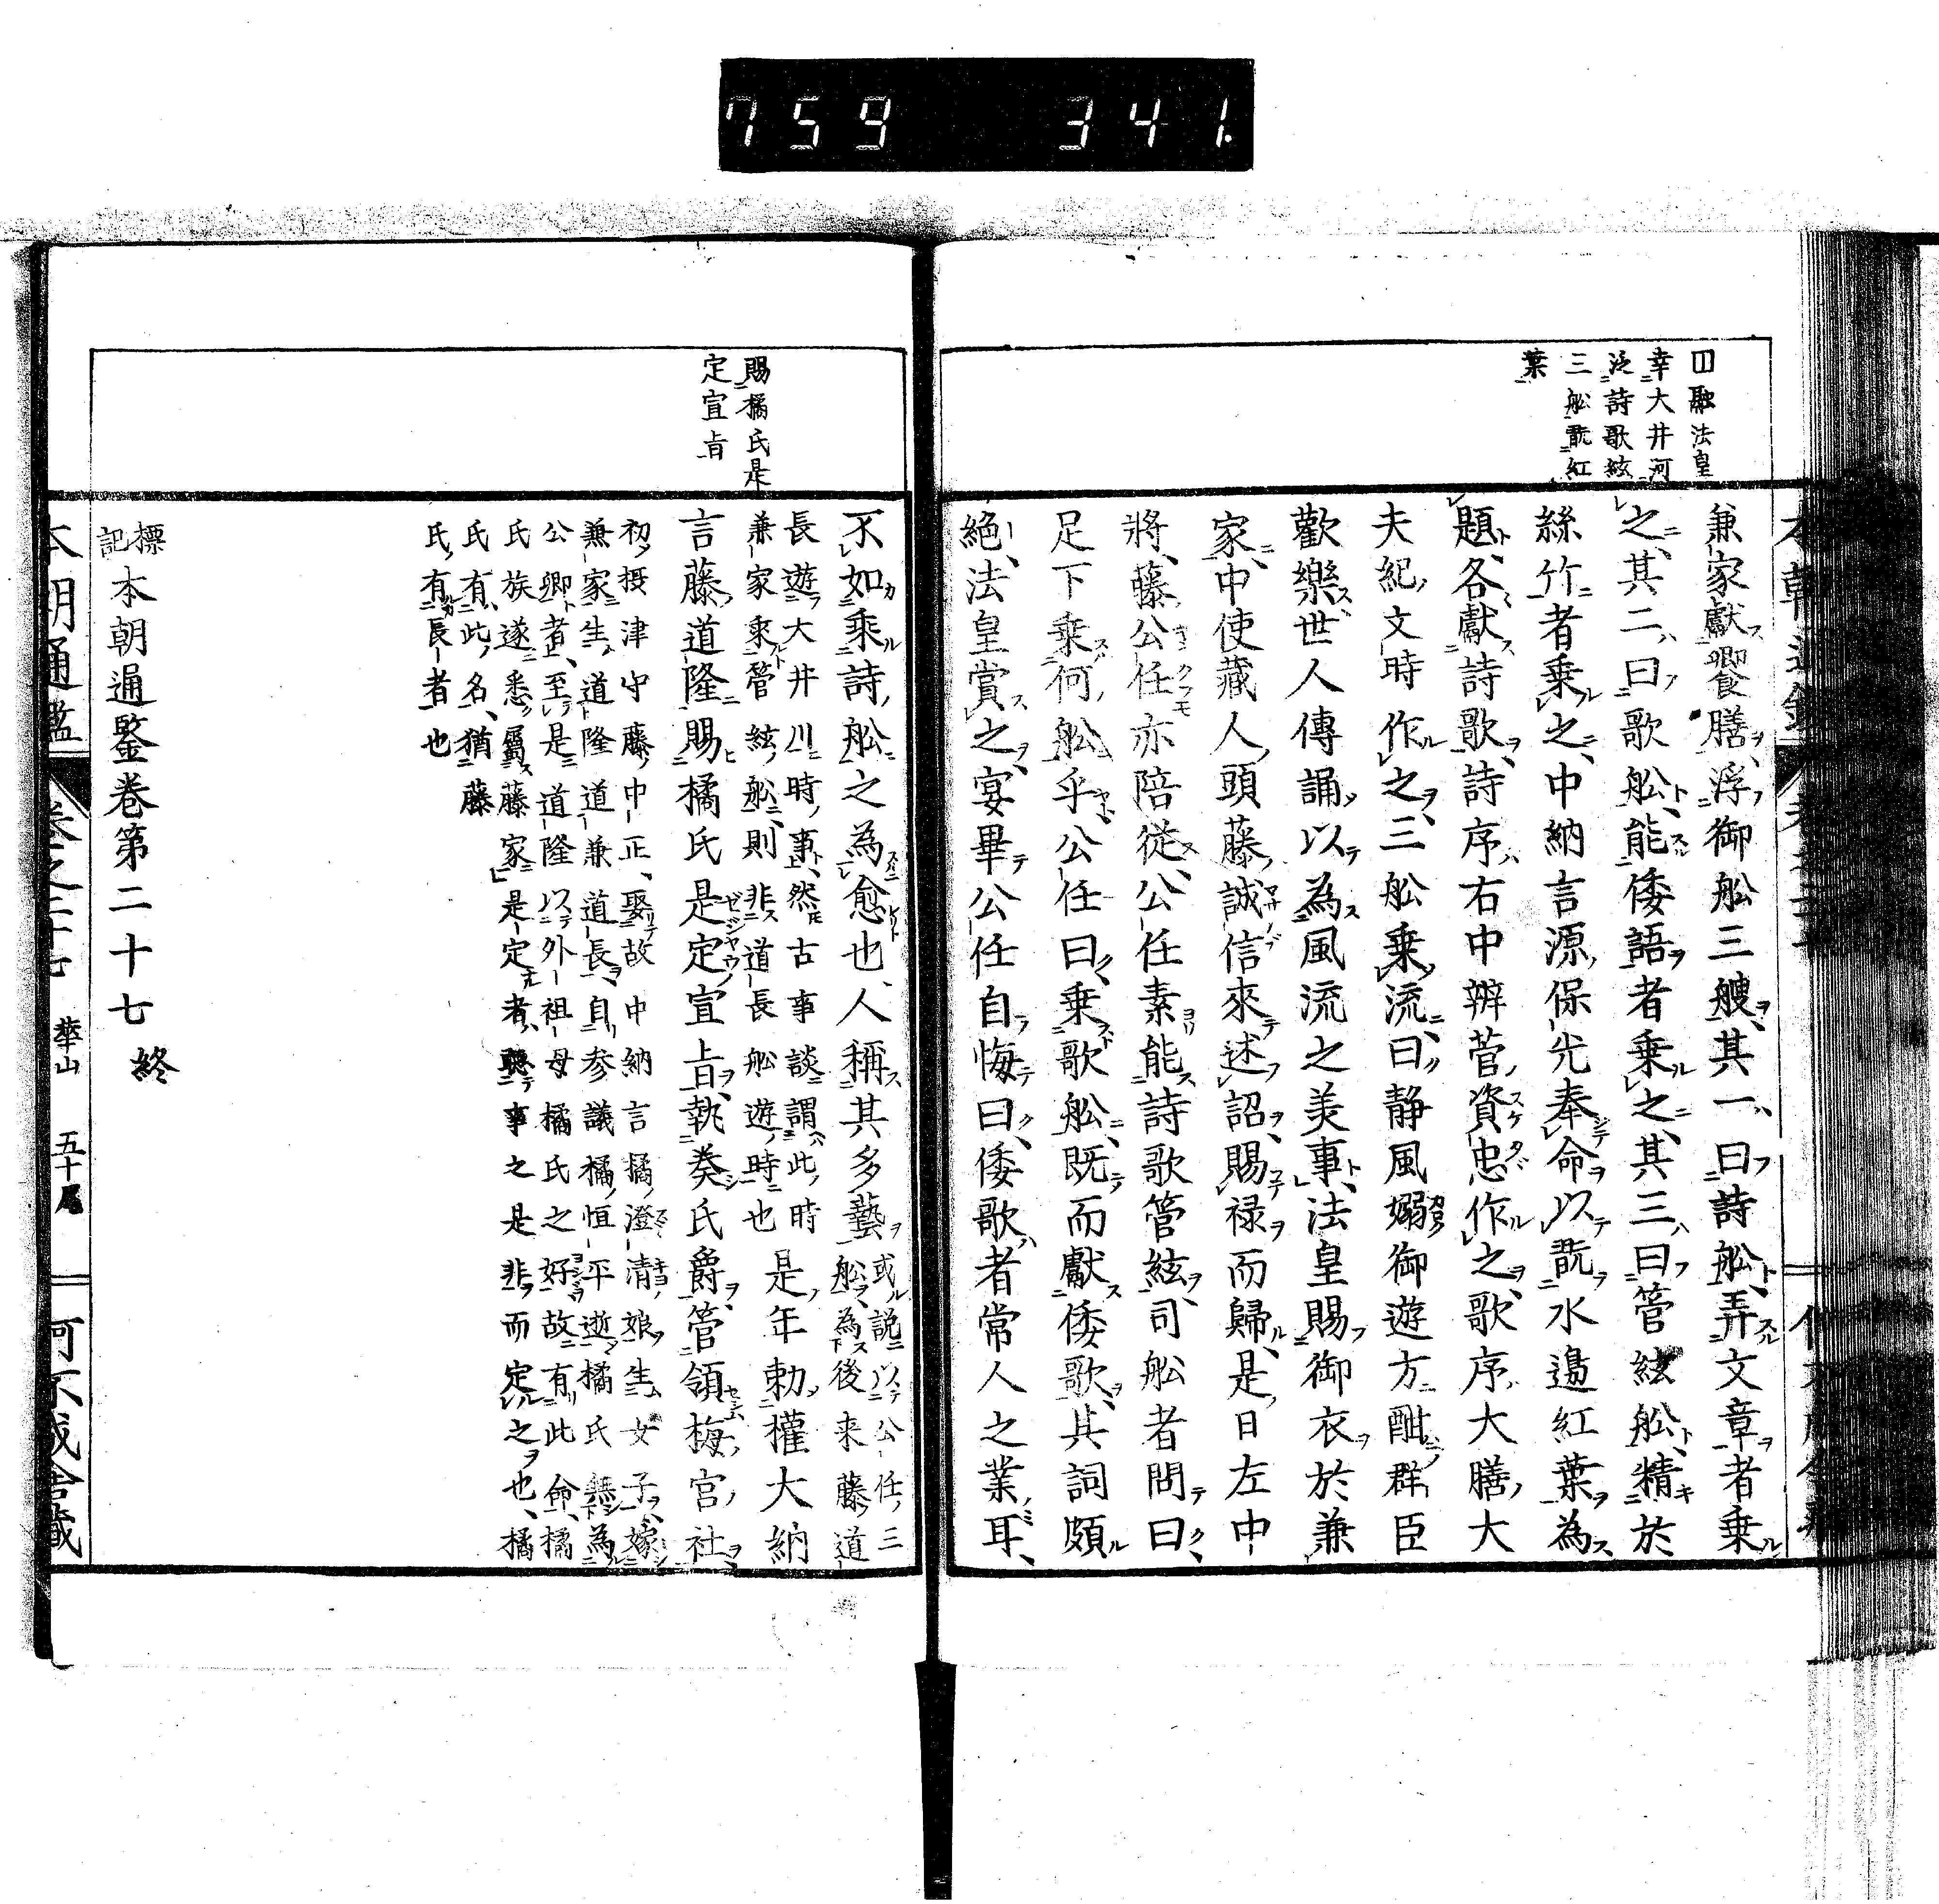 759 341.
融法皇
幸大井河
泛詩歌絃
三舩翫紅
葉
兼家獻饗膳浮御舩三艘其一曰詩舩弄文章者乗
之其二曰歌舩能倭語者乗之其三曰管絃舩精於
絲竹者乗之中納言源保光奉命以翫水邉紅葉為
題各獻詩歌詩序右中辨菅資忠作之歌序大膳大
夫紀文時作之三舩乗流曰静風嫋御遊方酣群臣
歡樂世人傳誦以為風流之美事法皇賜御衣於兼
家中使藏人頭藤誠信來述詔賜禄而歸是日左中
將藤公任亦陪從公任素能詩歌管絃司舩者問曰
足下乗何舩乎公任曰乗歌舩既而獻倭歌其詞頗
絕法皇賞之宴畢公任自悔曰倭歌者常人之業耳
賜橘氏是
定宣旨
不如乗詩舩之為愈也人稱其多藝或説以公任三
舩為後来藤道
長遊大井川時事然古事談謂此時
兼家乗管絃舩則非道長舩遊時也是年勅權大納
言藤道隆賜橘氏是定宣旨執奏氏爵管領梅宮社
初摂津守藤中正娶故中納言橘澄清娘生女子嫁
兼家生道隆道兼道長自参議橘恒平逝橘氏無為
公卿者至是道隆以外祖母橘氏之好故有此命橘
氏族遂悉屬藤家是定者聽事之是非而定之也橘
氏有此名猶藤
氏有長者也
標記 本朝通鑒巻第二十七 終
本朝通鑑 巻之二十七 華山 五十尾